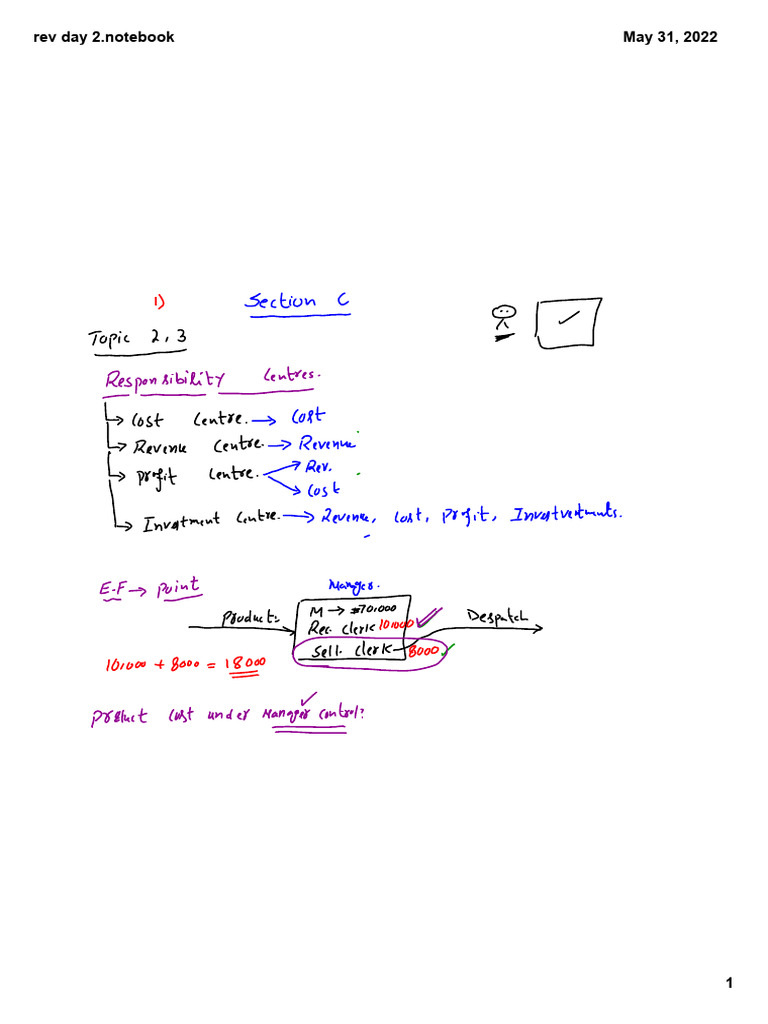 rev day 2.notebook May 31, 2022
1) Section C
Topic 2,3
Responsibility Centres.
Cost Centre. → Cost
Revenue Centre. → Revenue
Profit Centre. Rev.
Cost
Investment Centre. → Revenue, Cost, Profit, Investvestments.
E.F → Point
Manger.
M → $70,000
Product:
Rec. Clerk 10,000
Despatch
Sell. Clerk 8000
10,000 + 8000 = 18000
Product Cost under Manager Control?
1